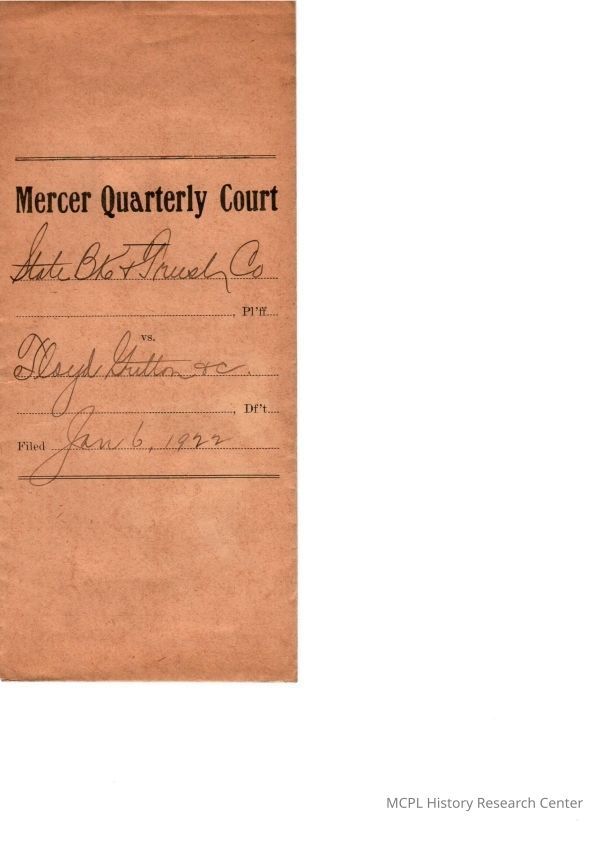 Mercer Quarterly Court
State Bk & Trust Co
, Pl'ff
vs.
Floyd Gritton &c.
, Df't
Filed Jan 6, 1922
MCPL History Research Center